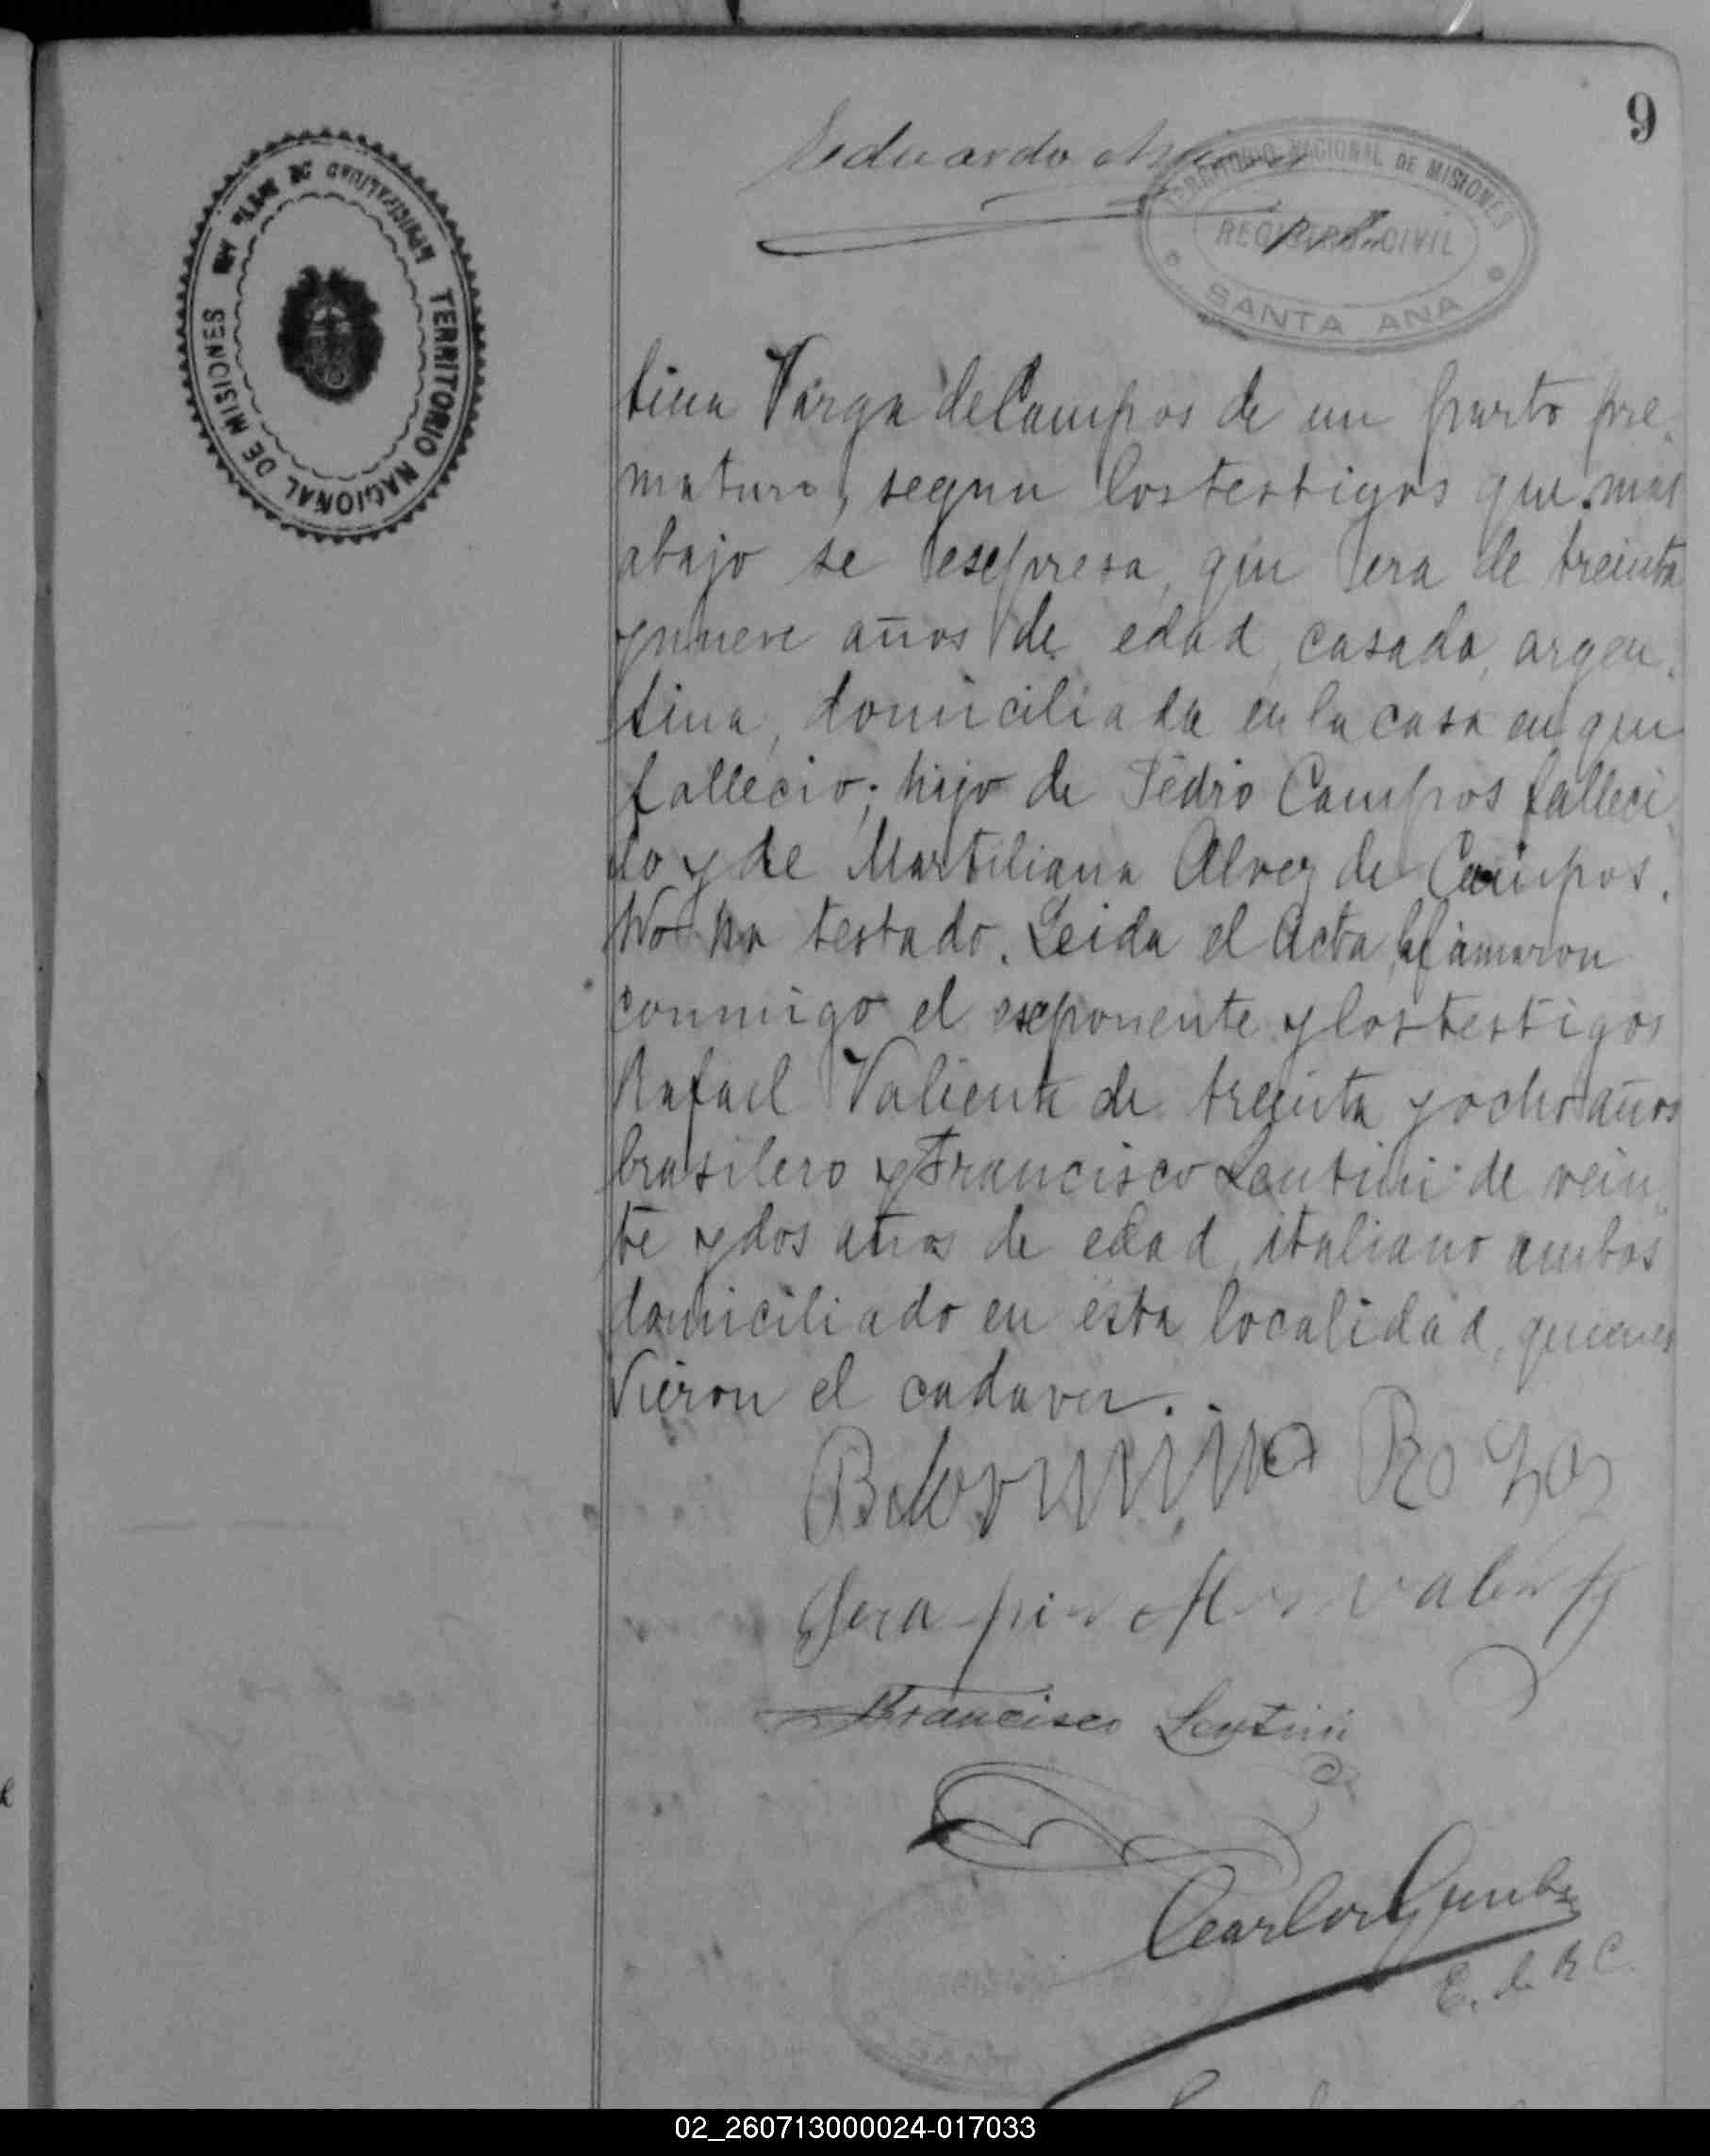 9
Eduardo
TERRITORIO NACIONAL DE MISIONES
REGISTRO CIVIL
SANTA ANA
TERRITORIO NACIONAL DE MISIONES
MUNICIPALIDAD DE SANTA ANA
tina Varga de Campos de un parto pre
maturo, segun los testigos que mas
abajo se esepresa, que era de treinta
y nueve años de edad, casada, argen
tina, domiciliada en la casa en que
fallecio; hijo de Pedro Campos falleci
do y de Martiliana Alvez de Campos.
No ha testado. Leida el Acta, la firmaron
conmigo el eseponente y los testigos
Rafael Valiente de treinta y ocho años
brasilero y Francisco Lentini de vein
te y dos años de edad, italiano ambos
domiciliado en esta localidad, quienes
vieron el cadaver.
Rojas
Francisco Lentini
Carlos
E. de R C.
02_260713000024-017033